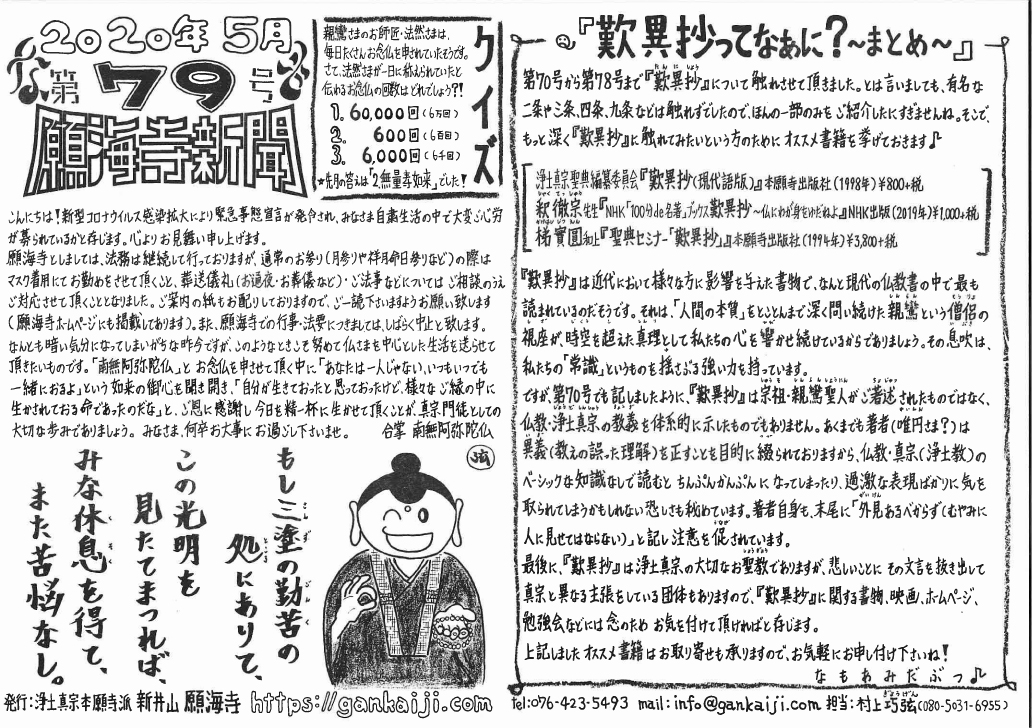 2020年5月
第79号
願海寺新聞
クイズ
親鸞さまのお師匠・法然さまは、
毎日たくさんお念仏を申されていたそうです。
さて、法然さまが一日に称えられていたと
伝わるお念仏の回数はどれでしょう?!
1. 60,000回(6万回)
2. 600回(6百回)
3. 6,000回(6千回)
★先月の答えは「2.無量寿如来」でした!
こんにちは!新型コロナウイルス感染拡大により緊急事態宣言が発令され、みなさま自粛生活の中で大変ご心労
が募られているかと存じます。心よりお見舞い申し上げます。
願海寺としましては、法務は継続して行っておりますが、通常のお参り(月参りや祥月命日参りなど)の際は
マスク着用にてお勤めをさせて頂くこと、葬送儀礼(お通夜・お葬儀など)・ご法事などについてはご相談のうえ
ご対応させて頂くこととなりました。ご案内の紙もお配りしておりますので、ご一読下さいますようお願い致します
(願海寺ホームページにも掲載してあります)。また、願海寺での行事・法要につきましては、しばらく中止と致します。
なんとも暗い気分になってしまいがちな昨今ですが、このようなときこそ努めて仏さまを中心とした生活を送らせて
頂きたいものです。「南無阿弥陀仏」とお念仏を申させて頂く中に「あなたは一人じゃない、いつもいつでも
一緒におるよ」という如来の御心を聞き開き、「自分が生きておったと思っておったけど、様々なご縁の中に
生かされておる命であったのだな」と、ご恩に感謝し今日を精一杯に生かせて頂くことが、真宗門徒としての
大切な歩みでありましょう。みなさま、何卒お大事にお過ごし下さいませ。 合掌 南無阿弥陀仏
弦
もし三塗の勤苦の
さんず ごんく
処にありて、
ところ
この光明を
見たてまつれば、
みな休息を得て、
くそく
また苦悩なし。
くのう
発行:浄土真宗本願寺派 新井山 願海寺 https://gankaiji.com
『歎異抄ってなぁに?~まとめ~』
たんにしょう
第70号から第78号まで『歎異抄』について触れさせて頂きました。とは言いましても、有名な
二条や三条、四条、九条などは触れずでしたので、ほんの一部のみをご紹介したにすぎませんね。そこで、
もっと深く『歎異抄』に触れてみたいという方のためにオススメ書籍を挙げておきます♪
浄土真宗聖典編纂委員会『歎異抄(現代語版)』本願寺出版社(1998年)¥800+税
しゃくてっしゅう
釈徹宗先生『NHK「100分de名著」ブックス 歎異抄~仏にわが身をゆだねよ』NHK出版(2019年)¥1,000+税
かけはしじつえん
梯實圓和上『聖典セミナー「歎異抄」』本願寺出版社(1994年)¥3,800+税
『歎異抄』は近代において様々な方に影響を与えた書物で、なんと現代の仏教書の中で最も
読まれているのだそうです。それは、「人間の本質」をとことんまで深く問い続けた親鸞という僧侶の
視座が、時空を超えた真理として私たちの心を響かせ続けているからでありましょう。その息吹は、
私たちの「常識」というものを揺さぶる強い力を持っています。
ですが、第70号でも記しましたように、『歎異抄』は宗祖・親鸞聖人がご著述されたものではなく、
仏教・浄土真宗の教義を体系的に示したものでもありません。あくまでも著者(唯円さま?)は
異義(教えの誤った理解)を正すことを目的に綴られておりますから、仏教・真宗(浄土教)の
ベーシックな知識なしで読むと ちんぷんかんぷんになってしまったり、過激な表現ばかりに気を
取られてしまうかもしれない恐しさも秘めています。著者自身も、末尾に「外見あるべからず(むやみに
人に見せてはならない)」と記し注意を促されています。
最後に、『歎異抄』は浄土真宗の大切なお聖教でありますが、悲しいことに その文言を抜き出して
真宗と異なる主張をしている団体もありますので、『歎異抄』に関する書物、映画、ホームページ、
勉強会などには念のため お気を付けて頂ければと存じます。
上記しましたオススメ書籍はお取り寄せも承りますので、お気軽にお申し付け下さいね!
なもあみだぶつ♪
tel:076-423-5493 mail:info@gankaiji.com 担当:村上巧弦(080-5031-6955)
ぎょうげん